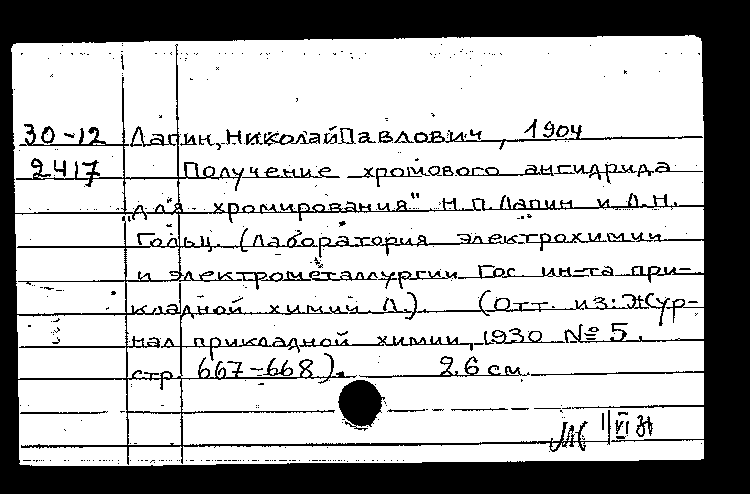 30-12 Лапин, Николай Павлович, 1904
2417 Получение хромового ангидрида
"для хромирования" Н.П. Лапин и Л.Н.
Гольц. (Лаборатория электрохимии
и электрометаллургии Гос. ин-та при-
кладной химии Л.). (Отт. из: Жур-
нал прикладной химии, 1930 № 5.
стр. 667-668). 26 см.
1/VI 31